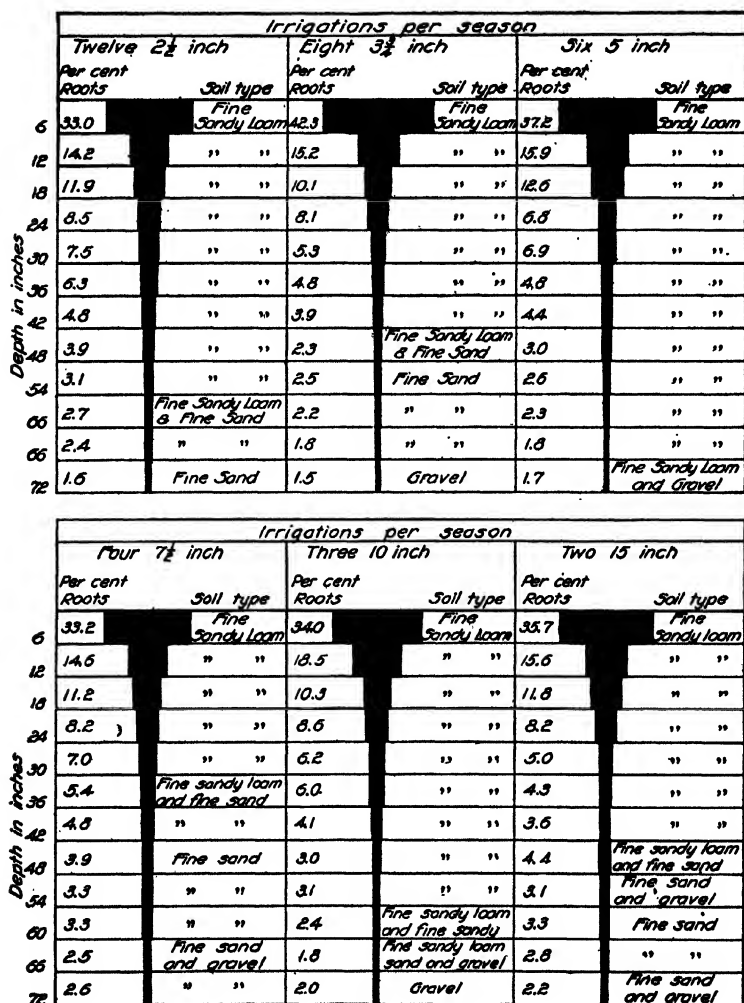 Irrigations per season
Twelve 2½ inch Eight 3¾ inch Six 5 inch
Per cent Roots Soil type Per cent Roots Soil type Per cent Roots Soil type
6 33.0 Fine Sandy Loam 42.3 Fine Sandy Loam 37.2 Fine Sandy Loam
12 14.2 " " 15.2 " " 15.9 " "
18 11.9 " " 10.1 " " 12.6 " "
24 8.5 " " 8.1 " " 6.8 " "
30 7.5 " " 5.3 " " 6.9 " "
36 6.3 " " 4.8 " " 4.8 " "
42 4.8 " " 3.9 " " 4.4 " "
48 3.9 " " 2.3 Fine Sandy Loam & Fine Sand 3.0 " "
54 3.1 " " 2.5 Fine Sand 2.6 " "
66 2.7 Fine Sandy Loam & Fine Sand 2.2 " " 2.3 " "
66 2.4 " " 1.8 " " 1.8 " "
72 1.6 Fine Sand 1.5 Gravel 1.7 Fine Sandy Loam and Gravel
Depth in inches
Irrigations per season
Four 7½ inch Three 10 inch Two 15 inch
Per cent Roots Soil type Per cent Roots Soil type Per cent Roots Soil type
6 33.2 Fine Sandy Loam 34.0 Fine Sandy Loam 35.7 Fine Sandy loam
12 14.6 " " 18.5 " " 15.6 " "
18 11.2 " " 10.3 " " 11.8 " "
24 8.2 " " 8.6 " " 8.2 " "
30 7.0 " " 6.2 " " 5.0 " "
36 5.4 Fine sandy loam and fine sand 6.0 " " 4.3 " "
42 4.8 " " 4.1 " " 3.6 " "
48 3.9 Fine sand 3.0 " " 4.4 Fine sandy loam and fine sand
54 3.3 " " 3.1 " " 3.1 Fine sand and gravel
60 3.3 " " 2.4 Fine sandy loam and fine sandy 3.3 Fine sand
66 2.5 Fine sand and gravel 1.8 Fine sandy loam sand and gravel 2.8 " "
72 2.6 " " 2.0 Gravel 2.2 Fine sand and gravel
Depth in inches